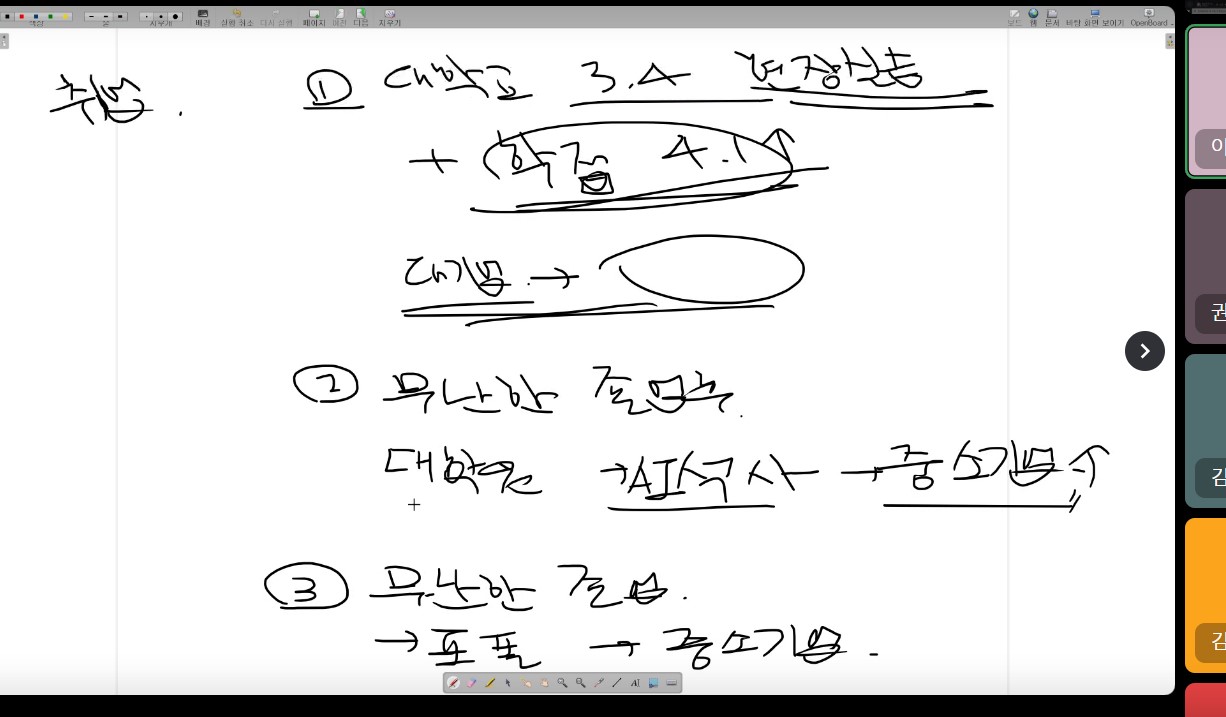 배경 실행 취소 다시 실행 페이지 이전 다음 지우기
보드 웹 문서 바탕 화면 보이기 OpenBoard
취업.
① 대학교 3.4
+ 학점 4.1↑
대기업 →
② 무난한 졸업후.
대학원 → AI석사 → 중소기업↑
③ 무난한 졸업.
→ 포폴 → 중소기업.
이
권
김
김